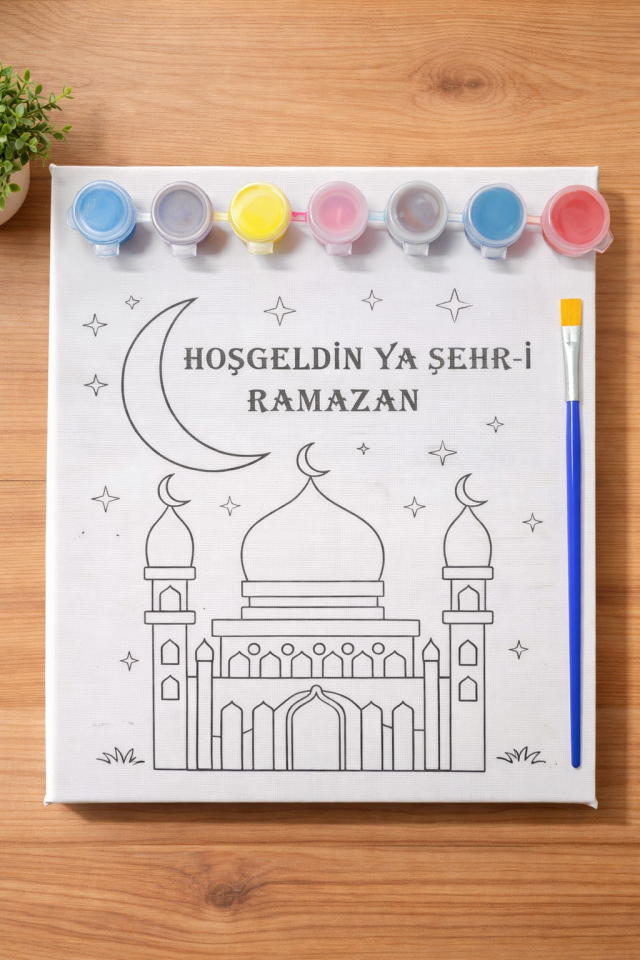 HOŞGELDİN YA ŞEHR-İ
RAMAZAN